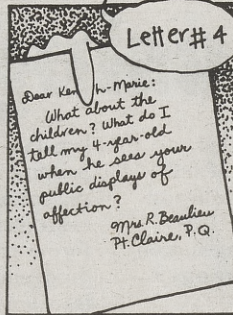 Letter # 4
Dear Ken h-Marie:
What about the
children? What do I
tell my 4-year-old
when he sees your
public displays of
affection?
Mrs. R. Beaulieu
Pt. Claire, P.Q.